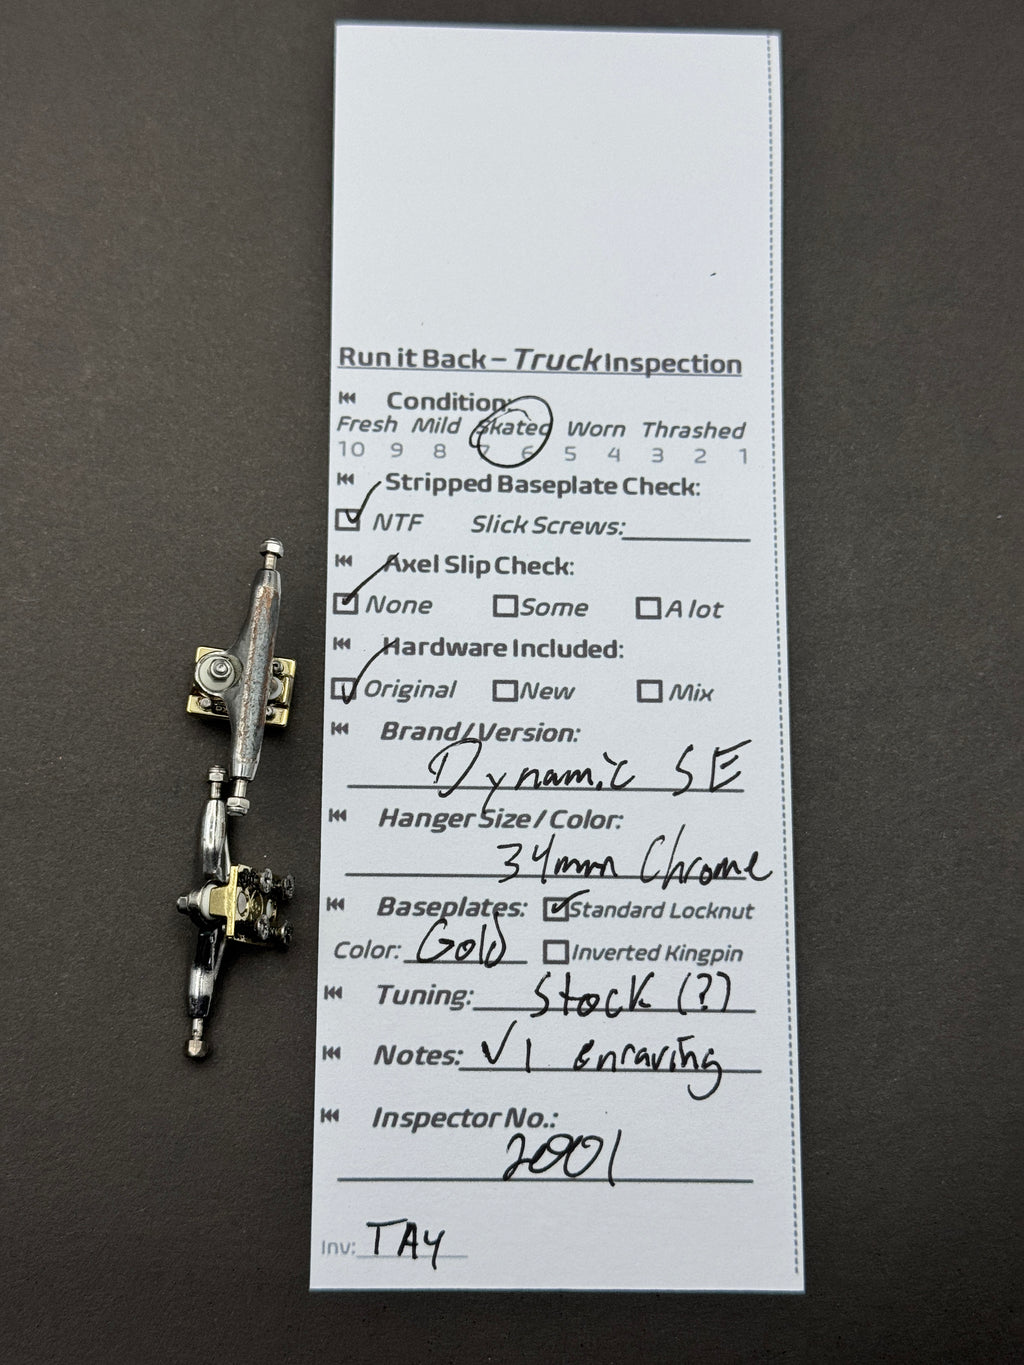 Run it Back – Truck Inspection
Condition:
Fresh Mild Skated Worn Thrashed
10 9 8 7 6 5 4 3 2 1
Stripped Baseplate Check:
NTF Slick Screws:
Axel Slip Check:
None Some A lot
Hardware Included:
Original New Mix
Brand/Version:
Dynamic SE
Hanger Size/Color:
34mm Chrome
Baseplates: Standard Locknut
Color: Gold Inverted Kingpin
Tuning: Stock (?)
Notes: V1 enraving
Inspector No.:
2001
Inv: TAY